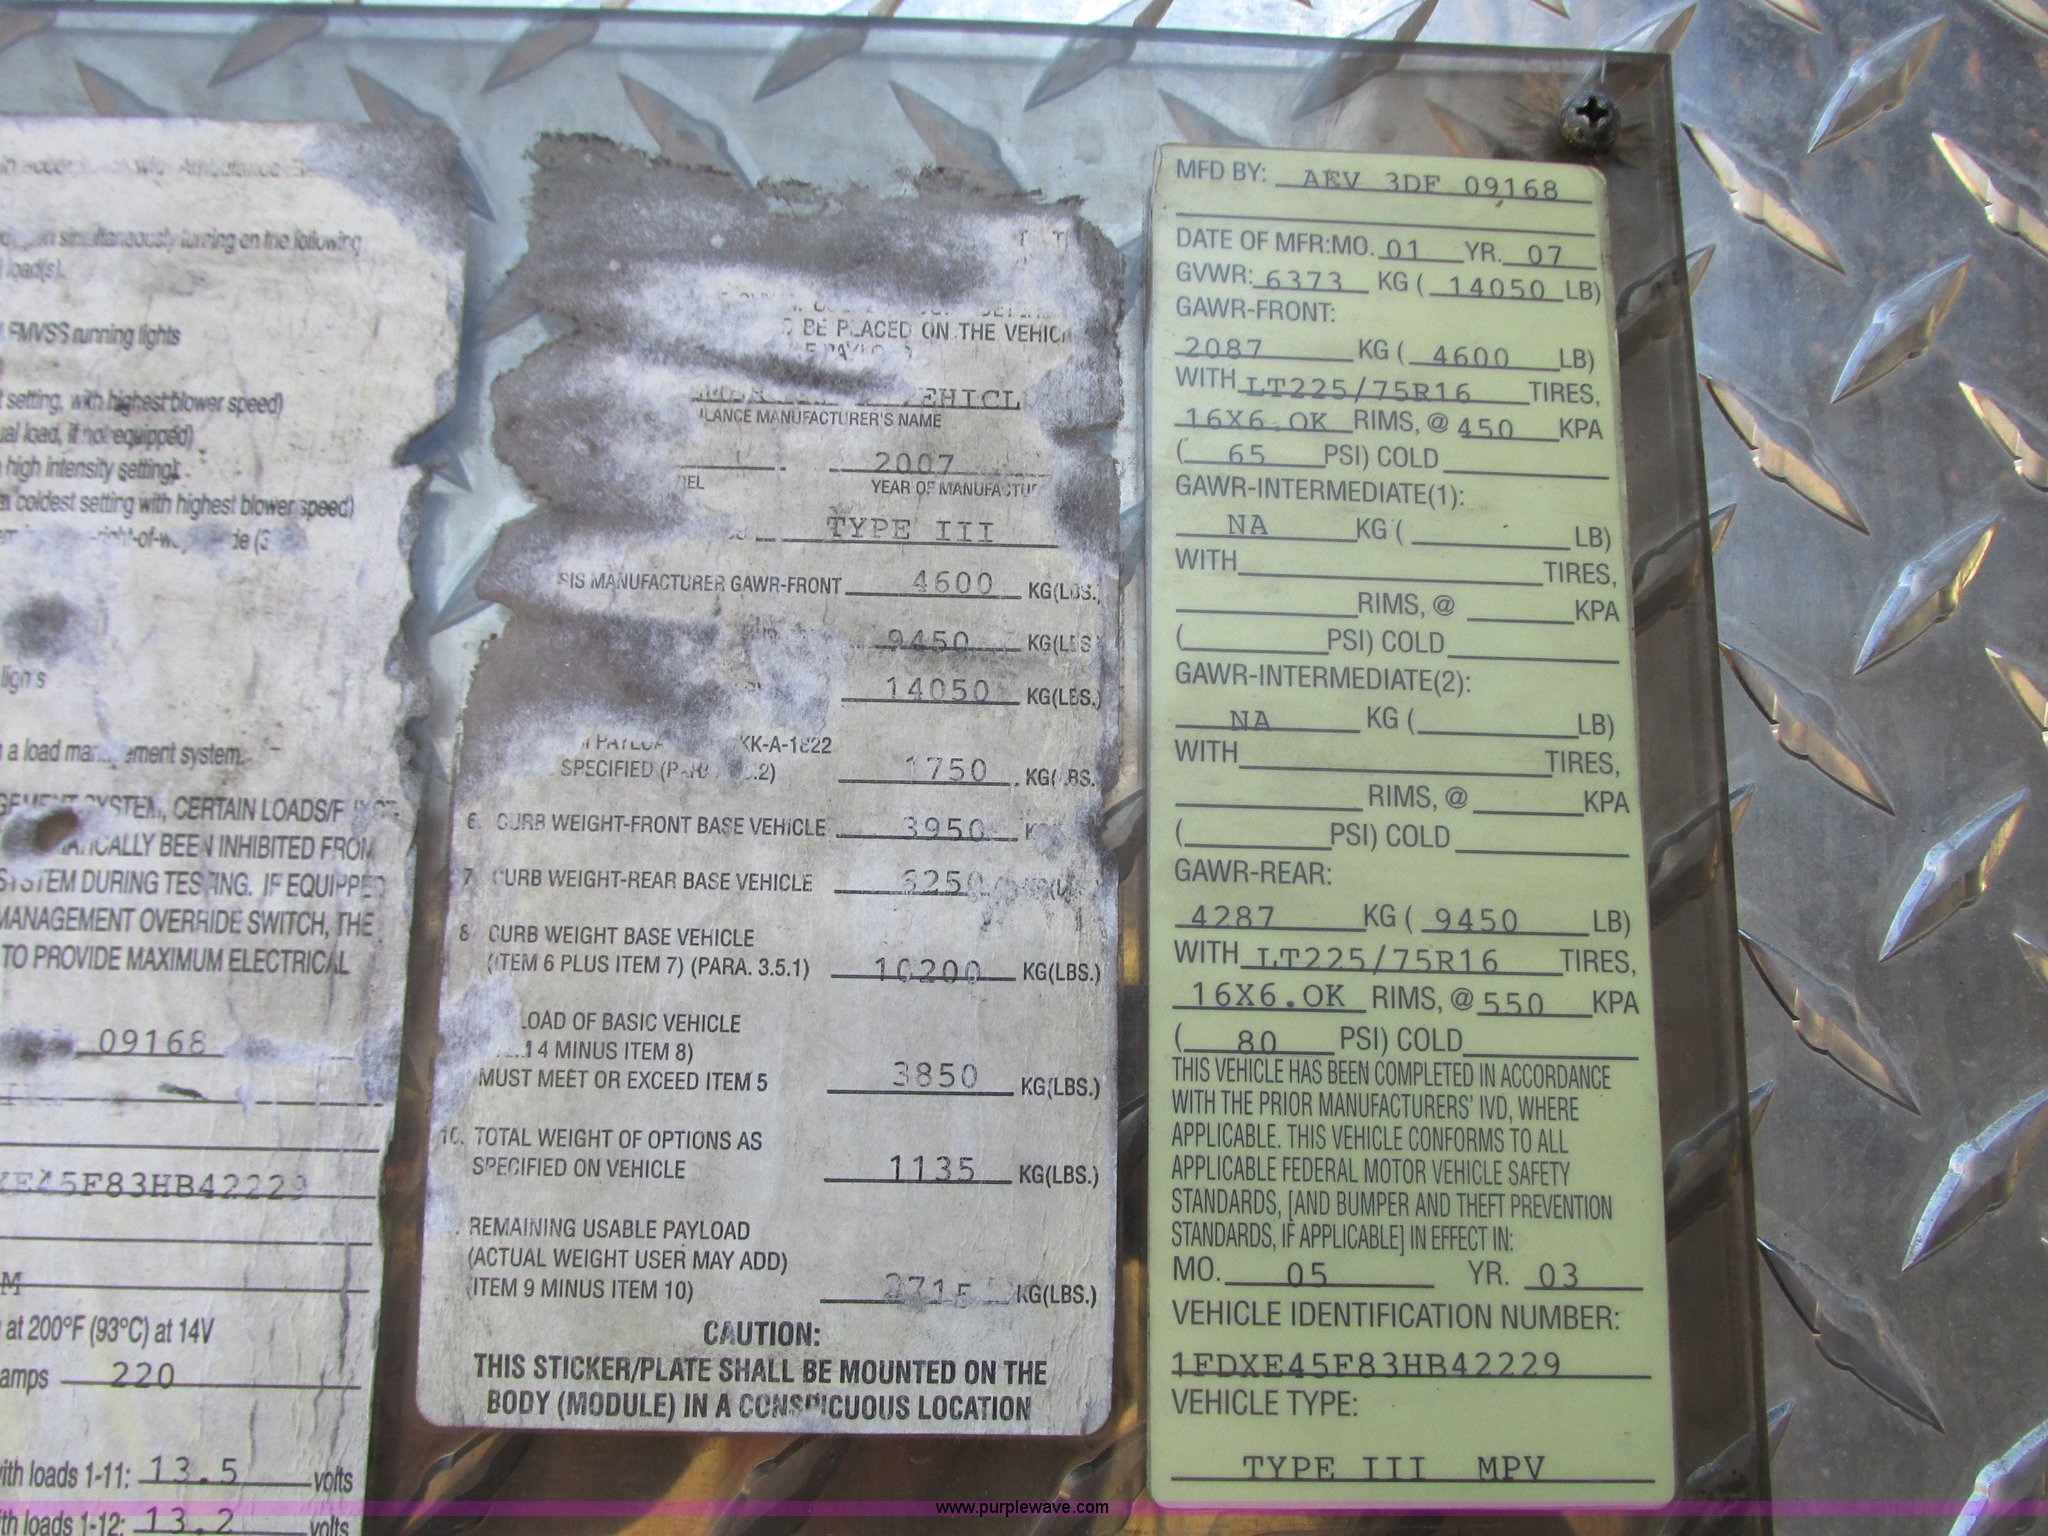 simultaneously turning on the following
load(s).
FMVSS running lights
setting, with highest blower speed)
ual load, if not equipped)
high intensity setting).
at coldest setting with highest blower speed)
right-of-way
a load management system.
SYSTEM, CERTAIN LOADS/F
BEEN INHIBITED FROM
SYSTEM DURING TESTING. IF EQUIPPED
MANAGEMENT OVERRIDE SWITCH, THE
TO PROVIDE MAXIMUM ELECTRICAL
09168
XE45F83HB42229
M
at 200°F (93°C) at 14V
amps 220
with loads 1-11: 13.5 volts
with loads 1-12: 13.2 volts
BE PLACED ON THE VEHIC
EHICL
LANCE MANUFACTURER'S NAME
2007
EL YEAR OF MANUFACTUR
TYPE III
SIS MANUFACTURER GAWR-FRONT 4600 KG(LBS.)
9450 KG(LBS
14050 KG(LBS.)
KK-A-1822
SPECIFIED 1750 KG(LBS.
6. CURB WEIGHT-FRONT BASE VEHICLE 3950
7 CURB WEIGHT-REAR BASE VEHICLE 6250
8 CURB WEIGHT BASE VEHICLE
(ITEM 6 PLUS ITEM 7) (PARA. 3.5.1) 10200 KG(LBS.)
LOAD OF BASIC VEHICLE
4 MINUS ITEM 8)
MUST MEET OR EXCEED ITEM 5 3850 KG(LBS.)
10. TOTAL WEIGHT OF OPTIONS AS
SPECIFIED ON VEHICLE 1135 KG(LBS.)
REMAINING USABLE PAYLOAD
(ACTUAL WEIGHT USER MAY ADD)
(ITEM 9 MINUS ITEM 10) 2715 KG(LBS.)
CAUTION:
THIS STICKER/PLATE SHALL BE MOUNTED ON THE
BODY (MODULE) IN A CONSPICUOUS LOCATION
MFD BY: AEV 3DF 09168
DATE OF MFR:MO. 01 YR. 07
GVWR: 6373 KG ( 14050 LB)
GAWR-FRONT:
2087 KG ( 4600 LB)
WITH LT225/75R16 TIRES,
16X6.0K RIMS, @ 450 KPA
( 65 PSI) COLD
GAWR-INTERMEDIATE(1):
NA KG ( LB)
WITH TIRES,
RIMS, @ KPA
( PSI) COLD
GAWR-INTERMEDIATE(2):
NA KG ( LB)
WITH TIRES,
RIMS, @ KPA
( PSI) COLD
GAWR-REAR:
4287 KG ( 9450 LB)
WITH LT225/75R16 TIRES,
16X6.0K RIMS, @ 550 KPA
( 80 PSI) COLD
THIS VEHICLE HAS BEEN COMPLETED IN ACCORDANCE
WITH THE PRIOR MANUFACTURERS' IVD, WHERE
APPLICABLE. THIS VEHICLE CONFORMS TO ALL
APPLICABLE FEDERAL MOTOR VEHICLE SAFETY
STANDARDS, [AND BUMPER AND THEFT PREVENTION
STANDARDS, IF APPLICABLE] IN EFFECT IN:
MO. 05 YR. 03
VEHICLE IDENTIFICATION NUMBER:
1FDXE45F83HB42229
VEHICLE TYPE:
TYPE III MPV
www.purplewave.com